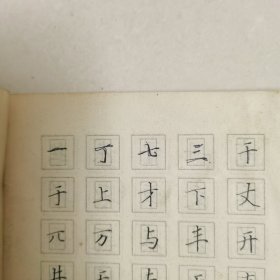 一 丁 七 三 干
于 上 才 下 丈
兀 万 与 丰 开